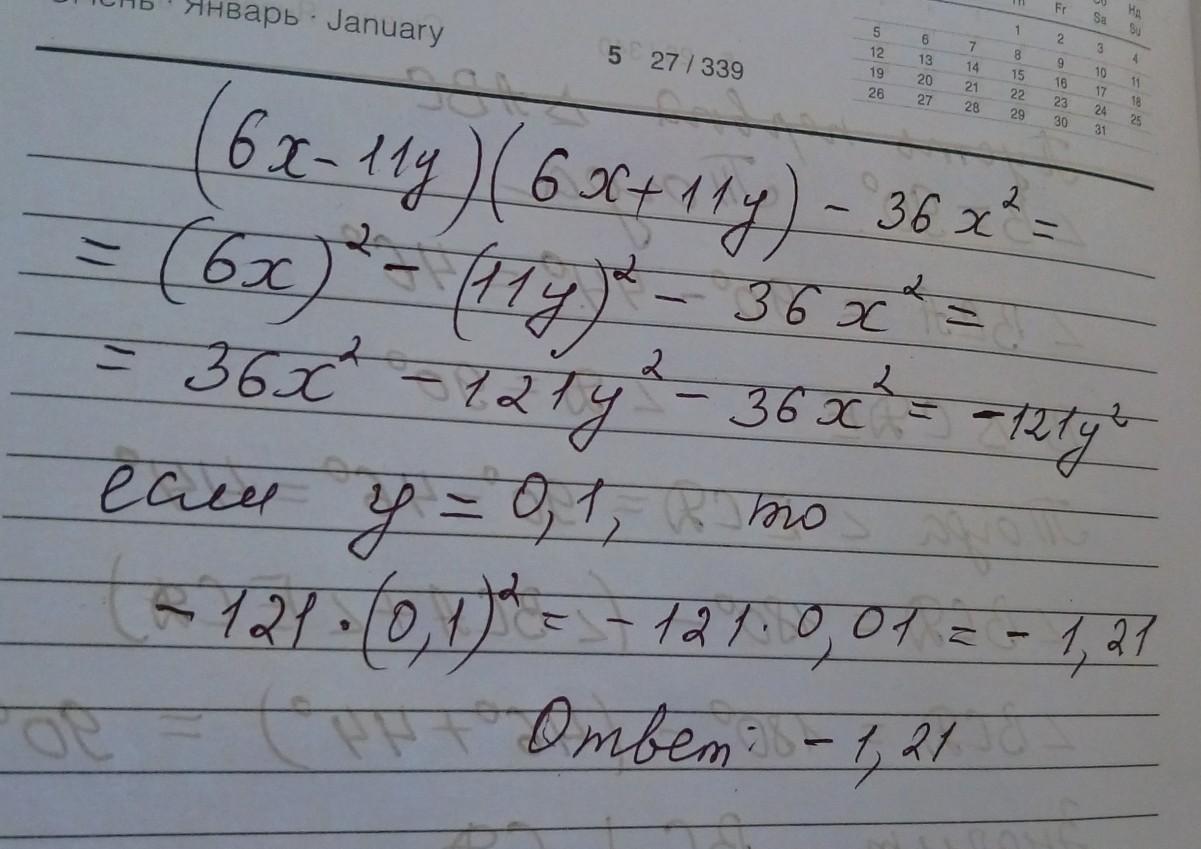 Январь · January
5 27 / 339
Fr Sa Su
Нд
1 2 3 4
5 6 7 8 9 10 11
12 13 14 15 16 17 18
19 20 21 22 23 24 25
26 27 28 29 30 31
(6x - 11y)(6x + 11y) - 36x² =
= (6x)² - (11y)² - 36x² =
= 36x² - 121y² - 36x² = -121y²
если y = 0,1, то
- 121 · (0,1)² = - 121 · 0,01 = - 1,21
Ответ: - 1,21